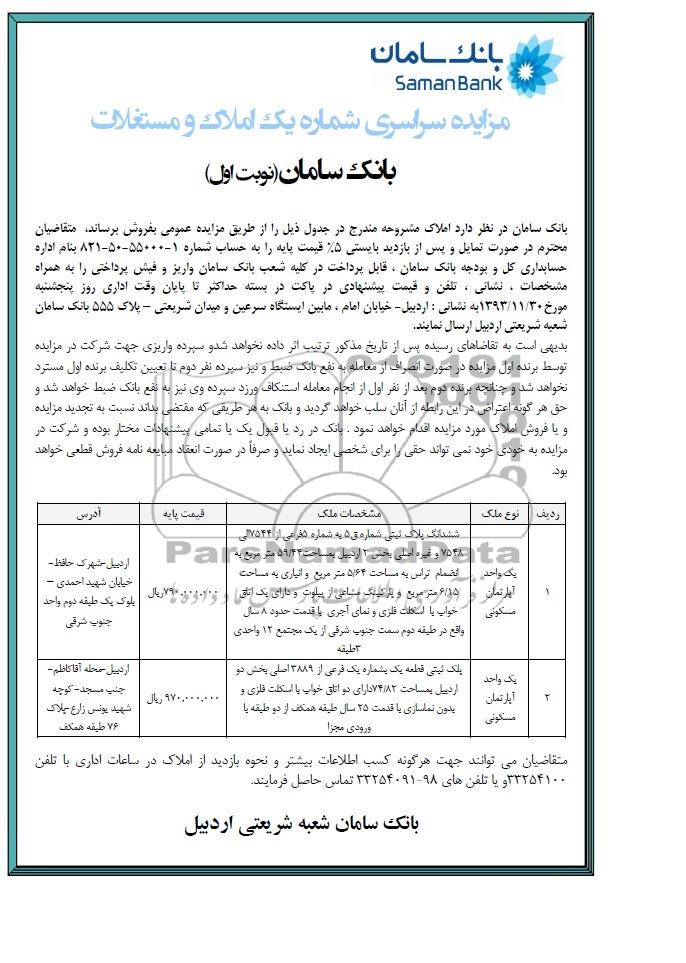 بانک سامان
SamanBank
مزایده سراسری شماره یک املاک و مستغلات
بانک سامان(نوبت اول)
بانک سامان در نظر دارد املاک مشروحه مندرج در جدول ذیل را از طریق مزایده عمومی بفروش برساند، متقاضیان
محترم در صورت تمایل و پس از بازدید بایستی ۵٪ قیمت پایه را به حساب شماره ۱-۵۵۰۰۰-۵۰-۸۲۱ بنام اداره
حسابداری کل و بودجه بانک سامان ، قابل پرداخت در کلیه شعب بانک سامان واریز و فیش پرداختی را به همراه
مشخصات ، نشانی ، تلفن و قیمت پیشنهادی در پاکت در بسته حداکثر تا پایان وقت اداری روز پنجشنبه
مورخ۱۳۹۳/۱۱/۳۰به نشانی : اردبیل- خیابان امام ، مابین ایستگاه سرعین و میدان شریعتی – پلاک ۵۵۵ بانک سامان
شعبه شریعتی اردبیل ارسال نمایند.
بدیهی است به تقاضاهای رسیده پس از تاریخ مذکور ترتیب اثر داده نخواهد شدو سپرده واریزی جهت شرکت در مزایده
توسط برنده اول مزایده در صورت انصراف از معامله به نفع بانک ضبط و نیز سپرده نفر دوم تا تعیین تکلیف برنده اول مسترد
نخواهد شد و چنانچه برنده دوم بعد از نفر اول از انجام معامله استنکاف ورزد سپرده وی نیز به نفع بانک ضبط خواهد شد و
حق هر گونه اعتراض در این رابطه از آنان سلب خواهد گردید و بانک به هر طریقی که مقتضی بداند نسبت به تجدید مزایده
و یا فروش املاک مورد مزایده اقدام خواهد نمود . بانک در رد یا قبول یک یا تمامی پیشنهادات مختار بوده و شرکت در
مزایده به خودی خود نمی تواند حقی را برای شخصی ایجاد نماید و صرفاً در صورت انعقاد مبایعه نامه فروش قطعی خواهد
بود.
ردیف نوع ملک مشخصات ملک قیمت پایه آدرس
۱
یک واحد
آپارتمان
مسکونی
ششدانگ پلاک ثبتی شماره ق۵ به شماره ۵فرعی از ۷۵۴۴الی
۷۵۴۸ و غیره اصلی بخش ۲ اردبیل بمساحت۵۹/۴۴ متر مربع به
انضمام تراس به مساحت ۵/۶۴ متر مربع و انباری به مساحت
۶/۱۵ متر مربع و پارکینگ مشاعی از پیلوت و دارای یک اتاق
خواب با اسکلت فلزی و نمای آجری با قدمت حدود ۸ سال
واقع در طبقه دوم سمت جنوب شرقی از یک مجتمع ۱۲ واحدی
۳طبقه
۷۹۰،۰۰۰،۰۰۰ریال
اردبیل-شهرک حافظ-
خیابان شهید احمدی –
بلوک یک طبقه دوم واحد
جنوب شرقی
۲
یک واحد
آپارتمان
مسکونی
پلک ثبتی قطعه یک بشماره یک فرعی از ۳۸۸۹ اصلی بخش دو
اردبیل بمساحت ۷۴/۸۲دارای دو اتاق خواب با اسکلت فلزی و
بدون نماسازی با قدمت ۲۵ سال طبقه همکف از دو طبقه با
ورودی مجزا
۹۷۰،۰۰۰،۰۰۰ ریال
اردبیل-محله آقاکاظم-
جنب مسجد- کوچه
شهید یونس زارع-پلاک
۷۶ طبقه همکف
متقاضیان می توانند جهت هرگونه کسب اطلاعات بیشتر و نحوه بازدید از املاک در ساعات اداری با تلفن
۳۳۲۵۴۱۰۰و یا تلفن های ۹۸-۳۳۲۵۴۰۹۱ تماس حاصل فرمایند.
بانک سامان شعبه شریعتی اردبیل
ParsNamadData